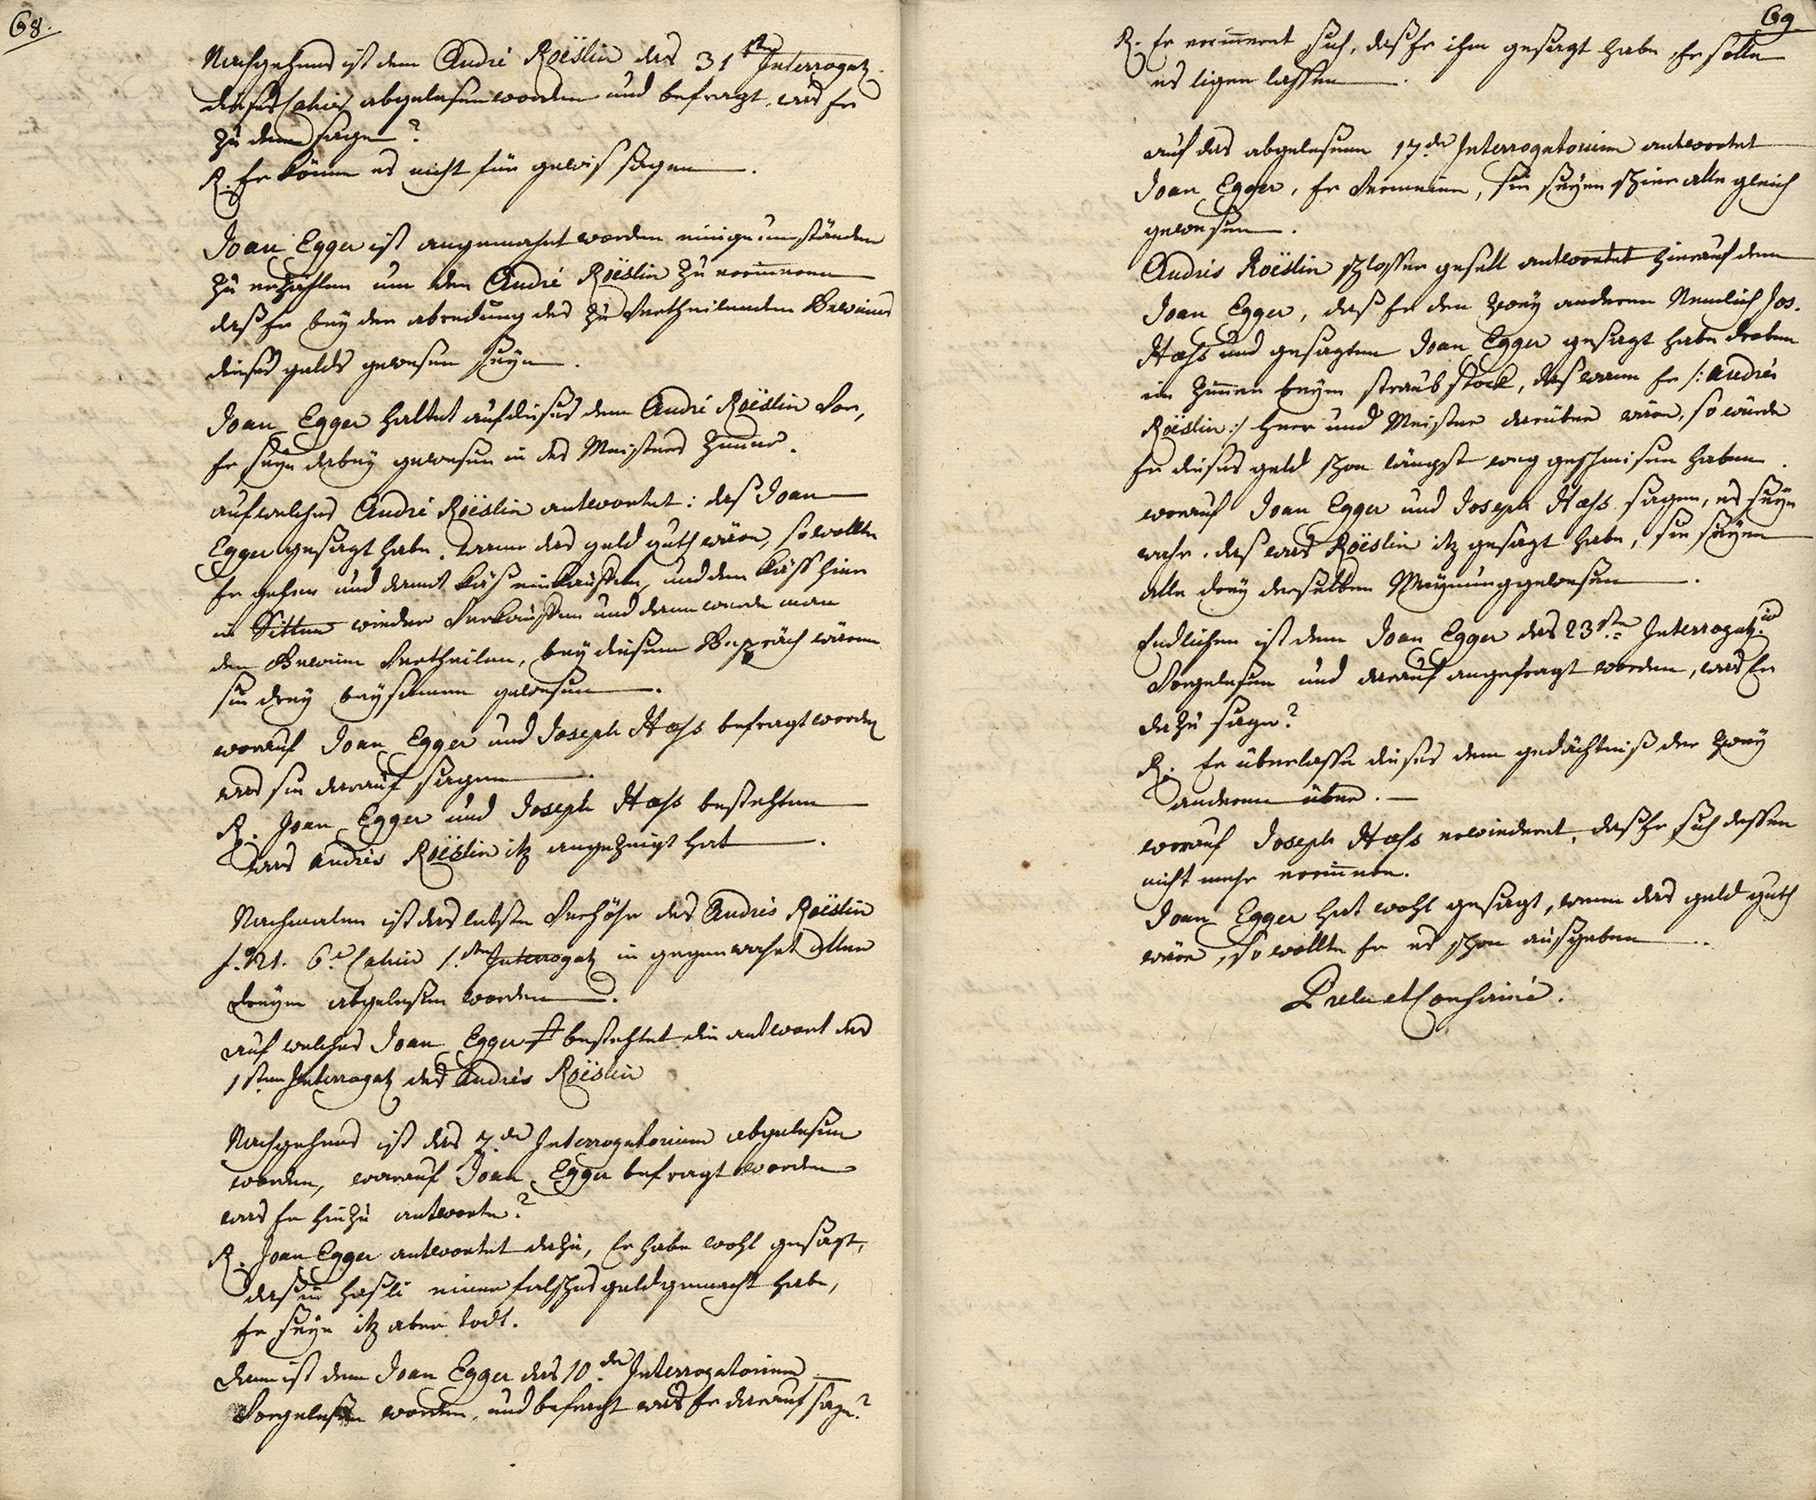 68.
Nachgehens ist dem André Roëslin das 31ste Interrogat.
dieses Cahier abgelesen worden und befragt, was Er
zu dem sage?
R. Er könne es nicht für gewis sagen.
Joan Egger ist angemahnt worden einige umständen
zu erzahlen um den André Roëslin zu erinneren
daß er bey der abredung des zu Vertheilenden Gewins
dieses gelds gewesen seye.
Joan Egger haltet auf dieses dem André Roëslin Vor,
Er seye dabey gewesen in des Meisters Zimer.
auf welches André Roëslin antwortet: daß Joan
Egger gesagt habe, wenn das geld guth wäre, so wollte
Er gehen und damit Käß einkauffen, und den Käß hier
in Sitten wieder Verkauffen und dann werde man
den Gewinn Vertheilen, bey diesem Gespräch wären
sie drey beysamen gewesen.
worauf Joan Egger und Joseph Hass befragt worden
was sie darauf sagen.
R. Joan Egger und Joseph Hass bestehten
was Andrés Roëslin itz angezeigt hat.
Nachmalen ist das letste Verhöhr des Andrés Roëslin
6.e Cahier 1.ten Interrogat in gegenwahrt aller
dreyen abgelesen worden.
auf welches Joan Egger bestehtet die antwort des
1sten Interrogat des Andrés Roëslin
Nachgehens ist das 7.de Interrogatorium abgelesen
worden, worauf Joan Egger befragt worden
was Er hiezu antworte?
R. Joan Egger antwortet dazu, Er habe wohl gesagt,
daß im Hasli einer falsches geld gemacht habe,
Er seye itz aber todt.
dann ist dem Joan Egger das 10.de Interrogatorium
Vorgelesen worden, und befracht was Er darauf sage?
69
R. Er erinneret sich, daß Er ihm gesagt habe Er solle
es ligen lassen.
auf das abgelesene 17de Interrogatorium antwortet
Joan Egger, Er Vermeine, sie seyen schier alle gleich
gewesen.
Andrés Roëslin schlosser gesell antwortet hierauf dem
Joan Egger, daß Er den zwey anderen Nemlich Jos.
Hass und gesagten Joan Egger gesagt habe droben
im Zimmer beym straubstock, daß wann Er /: Andrés
Roëslin :/ Herr und Meister darüber wäre, so würde
Er dieses geld schon längst weg geschmisen haben.
worauf Joan Egger und Joseph Hass sagen, es seye
wahr. das was Roëslin itz gesagt habe, sie seyen
alle drey derselben Meynung gewesen.
Endlichen ist dem Joan Egger das 23ste Interrogat.
Vorgelesen und darauf angefragt worden, was Er
dazu sage?
R. Er überlasse dieses dem gedächtniß der zwey
anderen über.
worauf Joseph Hass erwiederet, daß Er sich dessen
nicht mehr erinnere.
Joan Egger hat wohl gesagt, wenn das geld guth
wäre, so wollte Er es schon ausgeben.